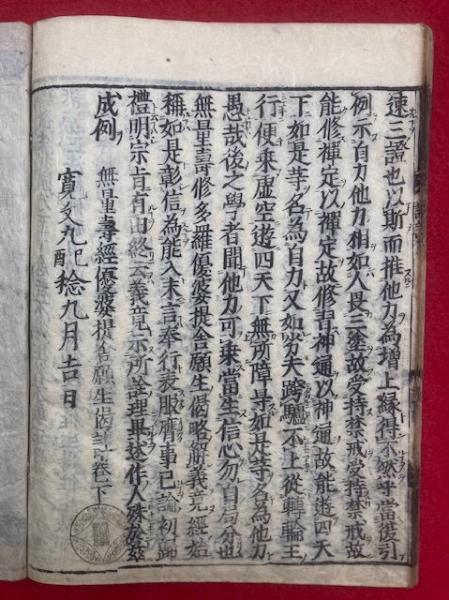 速三證也以斯而推他力為增上緣得不然乎當復引
例示自力他力相如人畏三塗故受持禁戒受持禁戒故
能修禪定以禪定故修習神通以神通故能遊四天
下如是等名為自力又如劣夫跨驢不上從轉輪王
行便乘虛空遊四天下無所障导如是等名為他力
愚哉後之學者聞他力可乘當生信心勿自局分也
無量壽修多羅優婆提舍願生偈略解義竟經始
稱如是彰信為能入末言奉行表服膺事已論初歸
禮明宗旨有由終云義竟示所詮理畢述作人殊於茲
成例
無量壽經優婆提舍願生偈註卷下
寛文九己酉稔九月吉日